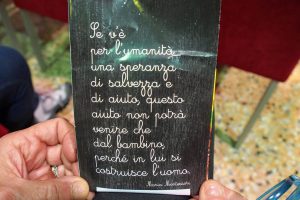 Se v'è
per l'umanità
una speranza
di salvezza e
di aiuto, questo
aiuto non potrà
venire che
dal bambino,
perché in lui si
costruisce l'uomo.
Maria Montessori